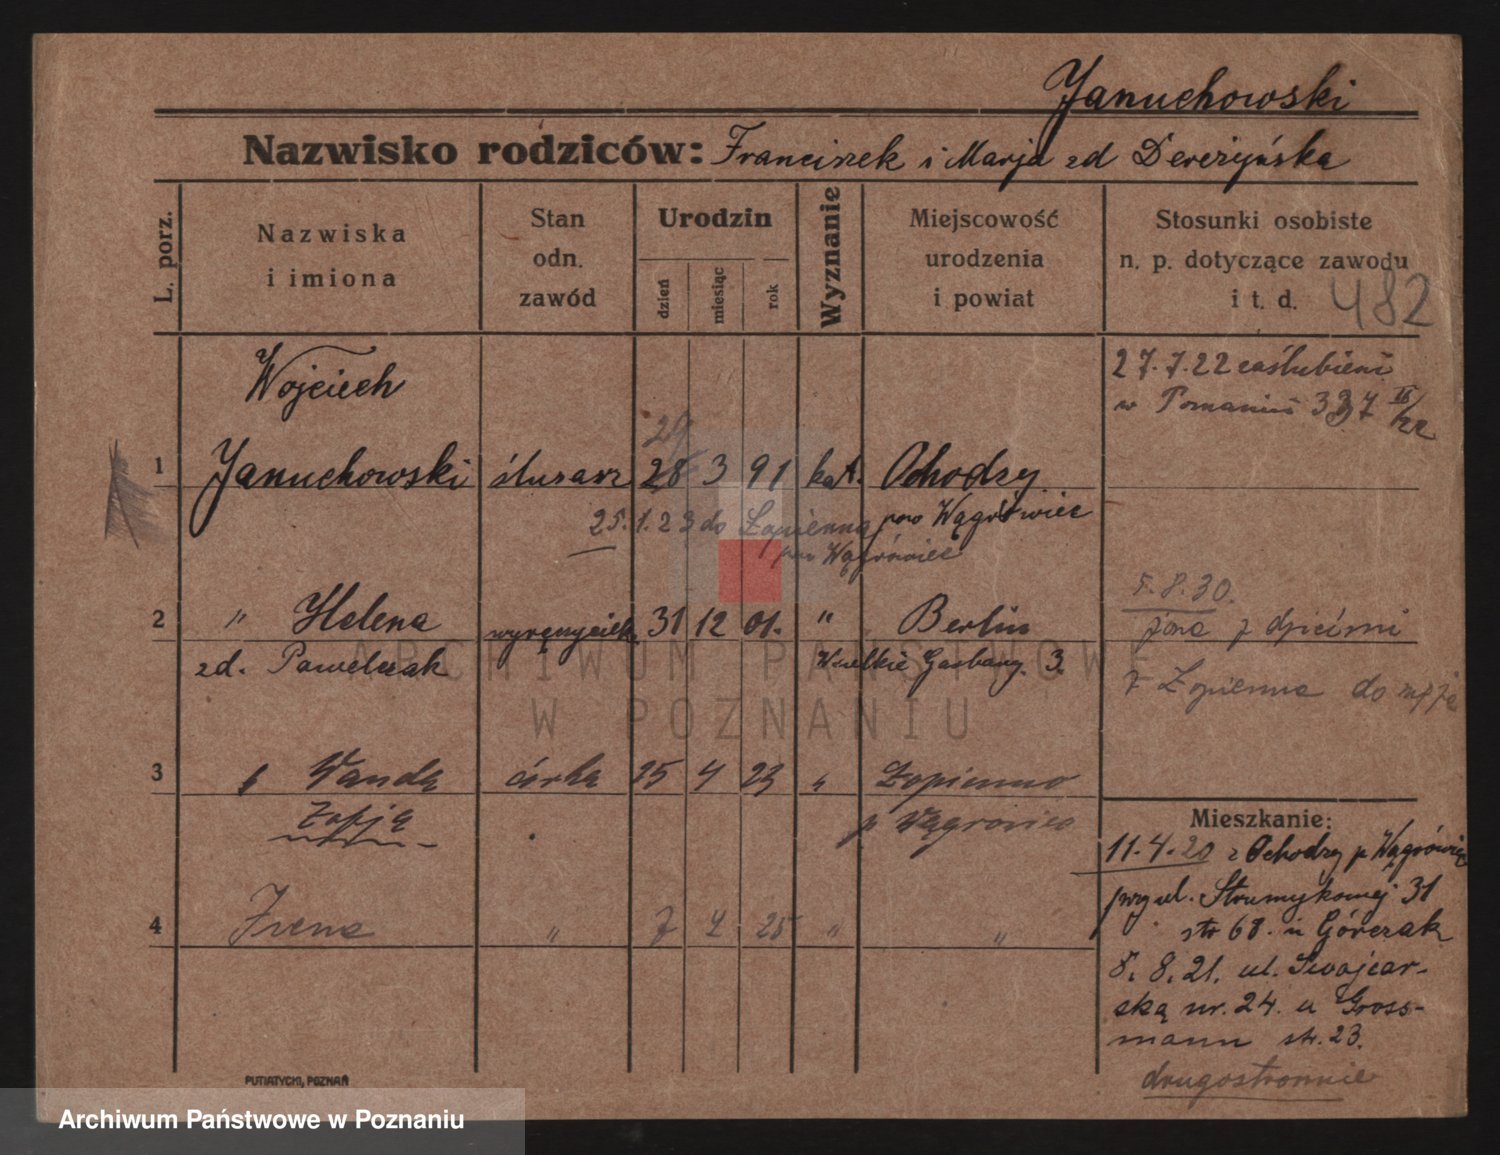 Januchowski
Nazwisko rodziców: Franciszek i Marja zd Dereżyńska
L. porz.
Nazwiska
i imiona
Stan
odn.
zawód
Urodzin
dzień
miesiąc
rok
Wyznanie
Miejscowość
urodzenia
i powiat
Stosunki osobiste
n. p. dotyczące zawodu
i t. d.
482
Wojciech
27.7.22 zaślubieni
w Poznaniu
29
1 Januchowski ślusarz 28 3 91 kat. Ochodzy
pow Wągrówiec
25.1.23 do Łopienna
pow Wągrówiec
5.8.30.
2 " Helena 31 12 01. " Berlin
żona z dziećmi
zd. Pawelczak
3.
z Łopienna do męża
3 " Wanda córka 25 4 23 " Łopienno
Zofją
p Wągrowiec
4 Irena " 7 2 25 " "
Mieszkanie:
11.4.20 z Ochodzy p Wągrówiec
przy ul. Strumykowej 31
str 68. u Górczak
8.8.21. ul. Szwajcar-
ską nr. 24. u Gross-
mann str. 23.
drugostronnie
PUTIATYCKI, POZNAŃ
ARCHIWUM PAŃSTWOWE
W POZNANIU
Archiwum Państwowe w Poznaniu